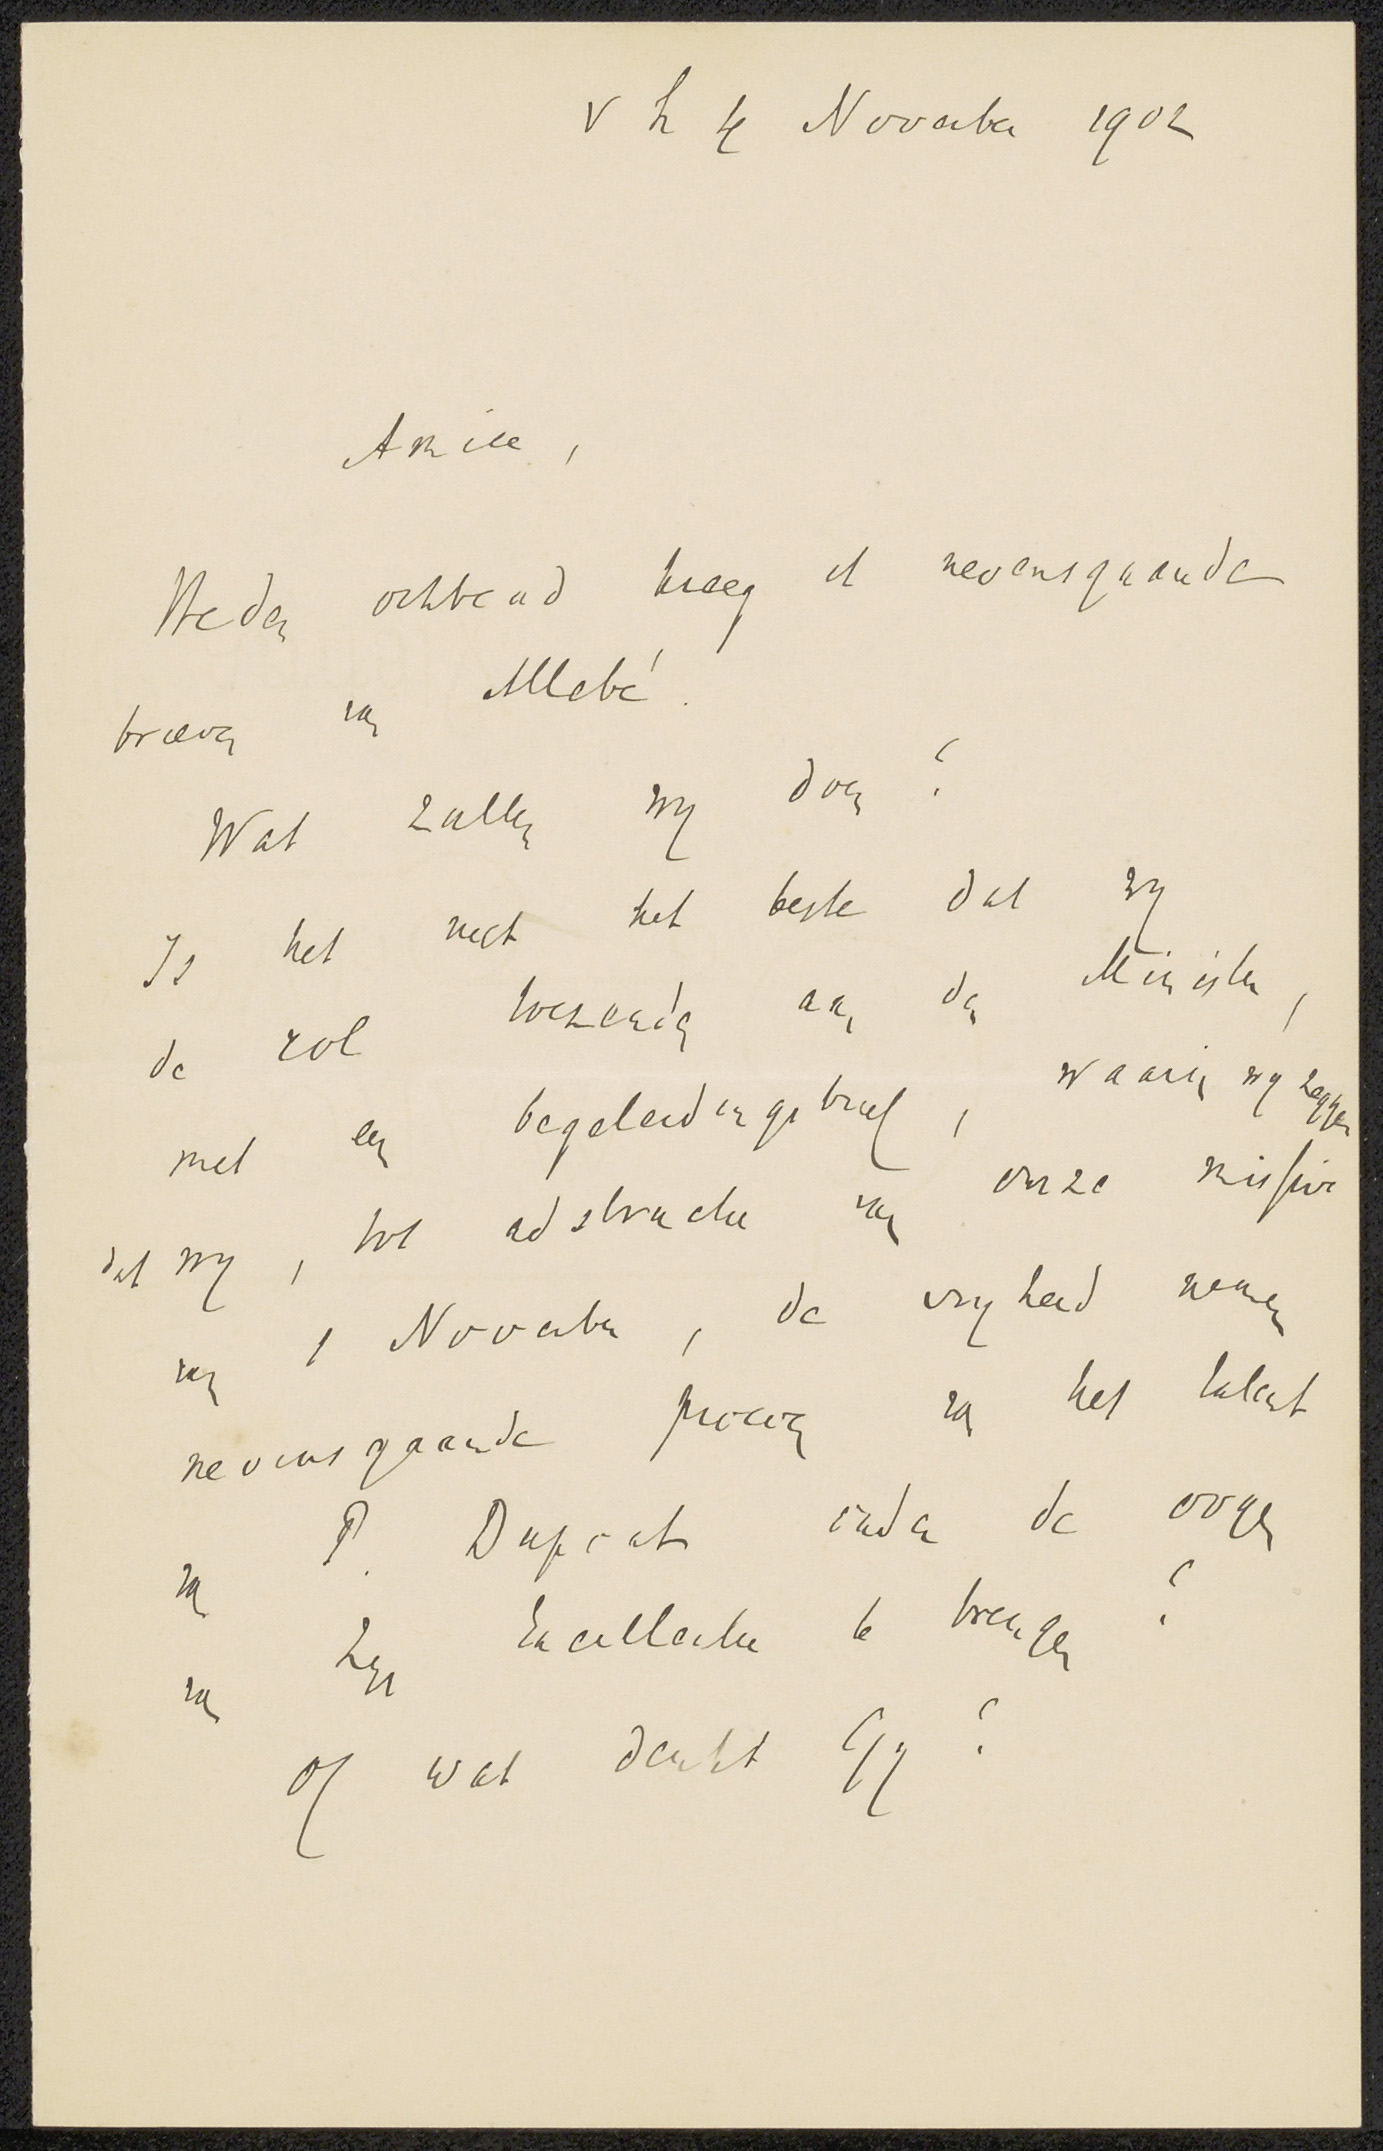 4 November 1902
Amice,
Heden ochtend kreeg ik nevensgaande
brieven van Allebé.
Wat zullen wy doen?
Is het niet het beste dat wy
de rol toezenden aan den Minister,
met een begeleidingsbrief, waarin wy zeggen
dat wy, tot adstructie van onze missive
van 1 November, de vryheid nemen
nevensgaande proeven van het talent
van P. Dupont onder de oogen
van Zyn Excellentie te brengen?
Of wat denkt Gy?